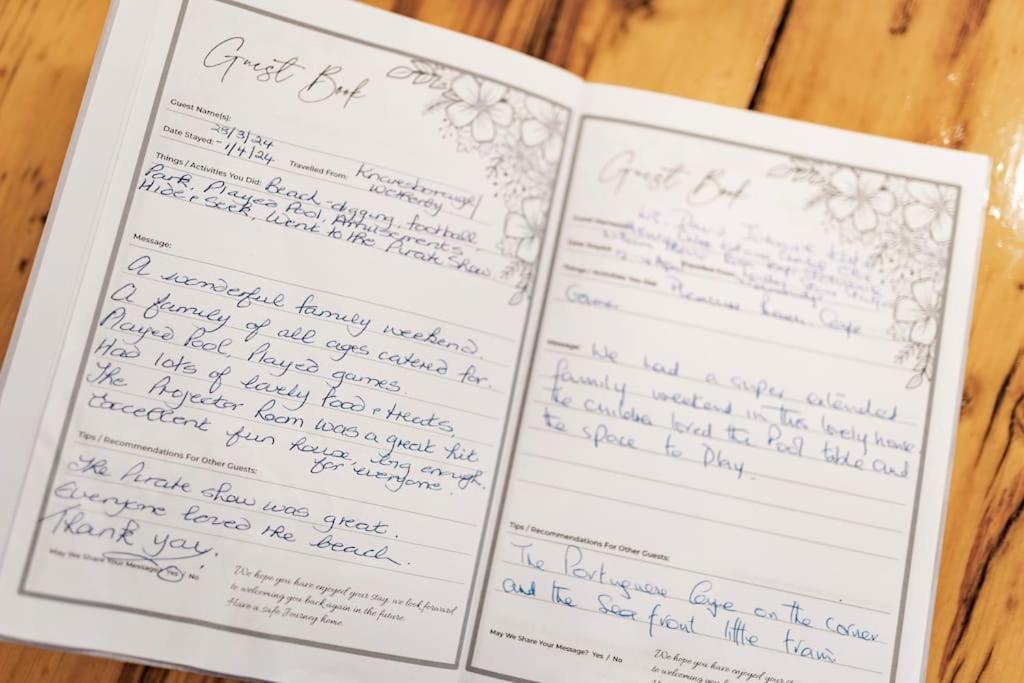 Guest Book
Guest Name(s):
Date Stayed: 28/3/24
- 1/4/24
Travelled From: Knaresborough/
Wetherby
Things / Activities You Did: Beach - digging, football,
Park, Played Pool, Amusements,
Hide & Seek, Went to the Pirate Show.
Message:
A wonderful family weekend.
A family of all ages catered for.
Played Pool, Played games.
Had lots of lovely food & treats,
The Projector Room was a great hit
Excellent fun house big enough
for everyone.
Tips / Recommendations For Other Guests:
The Pirate show was great.
Everyone loved the beach.
Thank you.
May We Share Your Message? Yes / No
We hope you have enjoyed your stay, we look forward
to welcoming you back again in the future.
Have a safe Journey home.
Guest Book
Date Stayed:
Travelled From:
Things / Activities You Did:
Message: We had a super extended
family weekend in this lovely house
the children loved the Pool table and
the space to play.
Tips / Recommendations For Other Guests:
The Portuguese Cafe on the corner
and the sea front little train.
May We Share Your Message? Yes / No
We hope you have enjoyed your
to welcoming you back